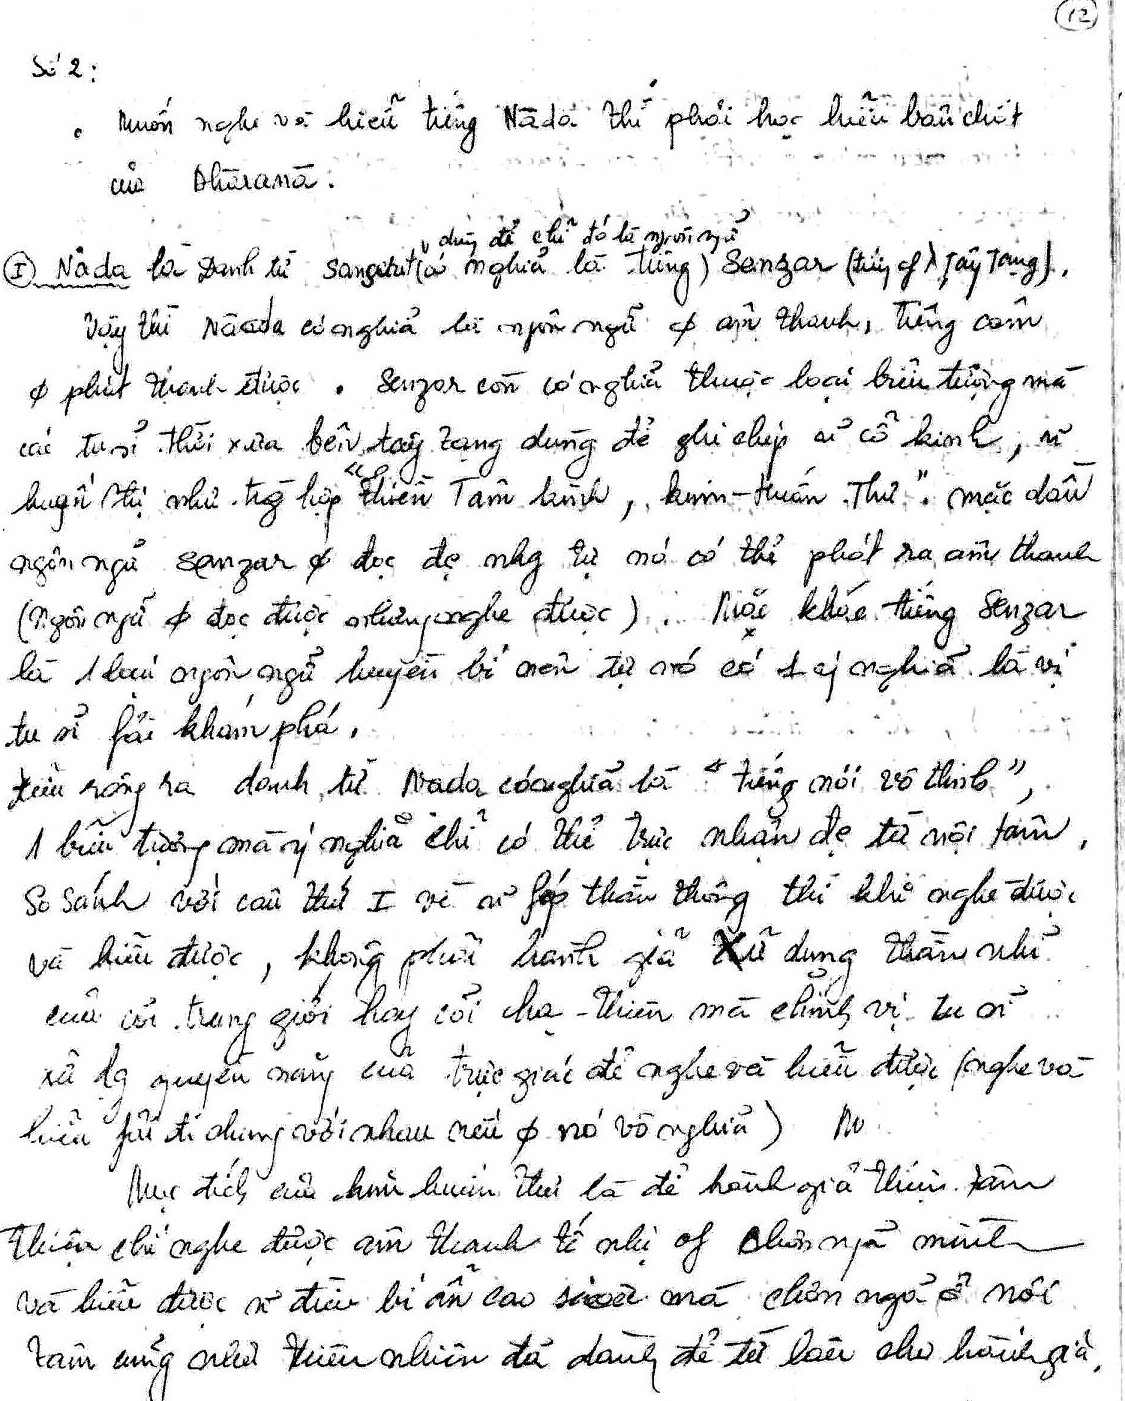 12
Số 2:
. Muốn nghe và hiểu tiếng Nāda thì phải học hiểu bản chất
của Dhāranā.
dùng để chỉ đó là ngôn ngữ
(I) Nâda là Danh từ sangskrit (có nghĩa là tiếng) Senzar (tiếng of Tây Tạng).
Vậy thì Nāada có nghĩa là ngôn ngữ φ âm thanh, tiếng câm
φ phát thành được. Senzar còn có nghĩa thuộc loại biểu tượng mà
các tu sĩ thời xưa bên tây tạng dùng để ghi chép ~ cổ kinh, ~
huyền thị như trg hợp "Thiền Tâm kinh, kim-Huấn Thư". mặc dầu
ngôn ngữ senzar φ đọc đc nhg tự nó có thể phát ra âm thanh
(Ngôn ngữ φ đọc được nhưng nghe được). Mặc khác tiếng Senzar
là 1 loại ngôn ngữ huyền bí nên tự nó có 1 ý nghĩa là vị
tu sĩ fải khám phá.
Hiểu rộng ra danh từ Nada có nghĩa là "tiếng nói vô thinh",
1 biểu tượng mà ý nghĩa chỉ có thể trực nhận đc từ nội tâm.
So sánh với câu thứ I về ~ fép thần thông thì khi nghe được
và hiểu được, không phải hành giả xử dụng thần nhĩ
của cõi trung giới hay cõi hạ-thiên mà chính vị tu sĩ
xử dg quyền năng của trực giác để nghe và hiểu được (nghe và
hiểu fải đi chung với nhau nếu φ nó vô nghĩa)
Mục đích của kim huấn thư là để hành giả thiện tâm
thiện chí nghe được âm thanh tế nhị of chơn ngã mình
và hiểu được ~ điều bí ẩn cao siêu mà chơn ngã ở nội
tâm cũng như thiên nhiên đã dành để từ lâu cho hành giả.